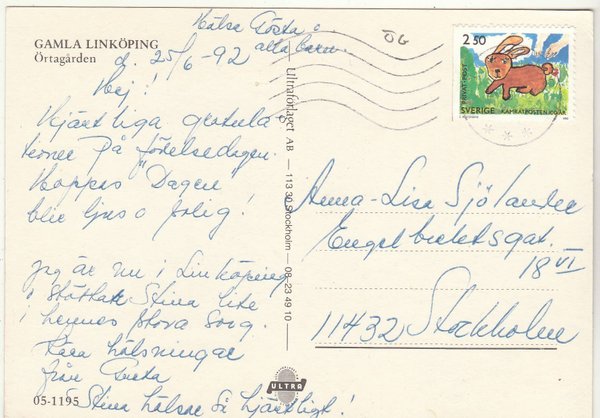 GAMLA LINKÖPING
Örtagården
Hälsa Gösta o
alla barn.
d. 25/6-92
Hej!
Hjärtliga gratula-
tioner på födelsedagen.
Hoppas "Dagen"
blir ljus o solig!
Jag är nu i Linköping
i stöttar Stina lite
i hennes stora sorg.
Kära hälsningar
från Greta
Stina hälsar så hjärtligt!
05-1195
Ultraförlaget AB — 113 30 Stockholm — 08-23 49 10
ULTRA
ÖG
2.50
PRIVATPOST
SVERIGE
KAMRATPOSTEN 100 ÅR
Anna-Lisa Sjölander
Engelbrektsgat.
18 VI
11432 Stockholm